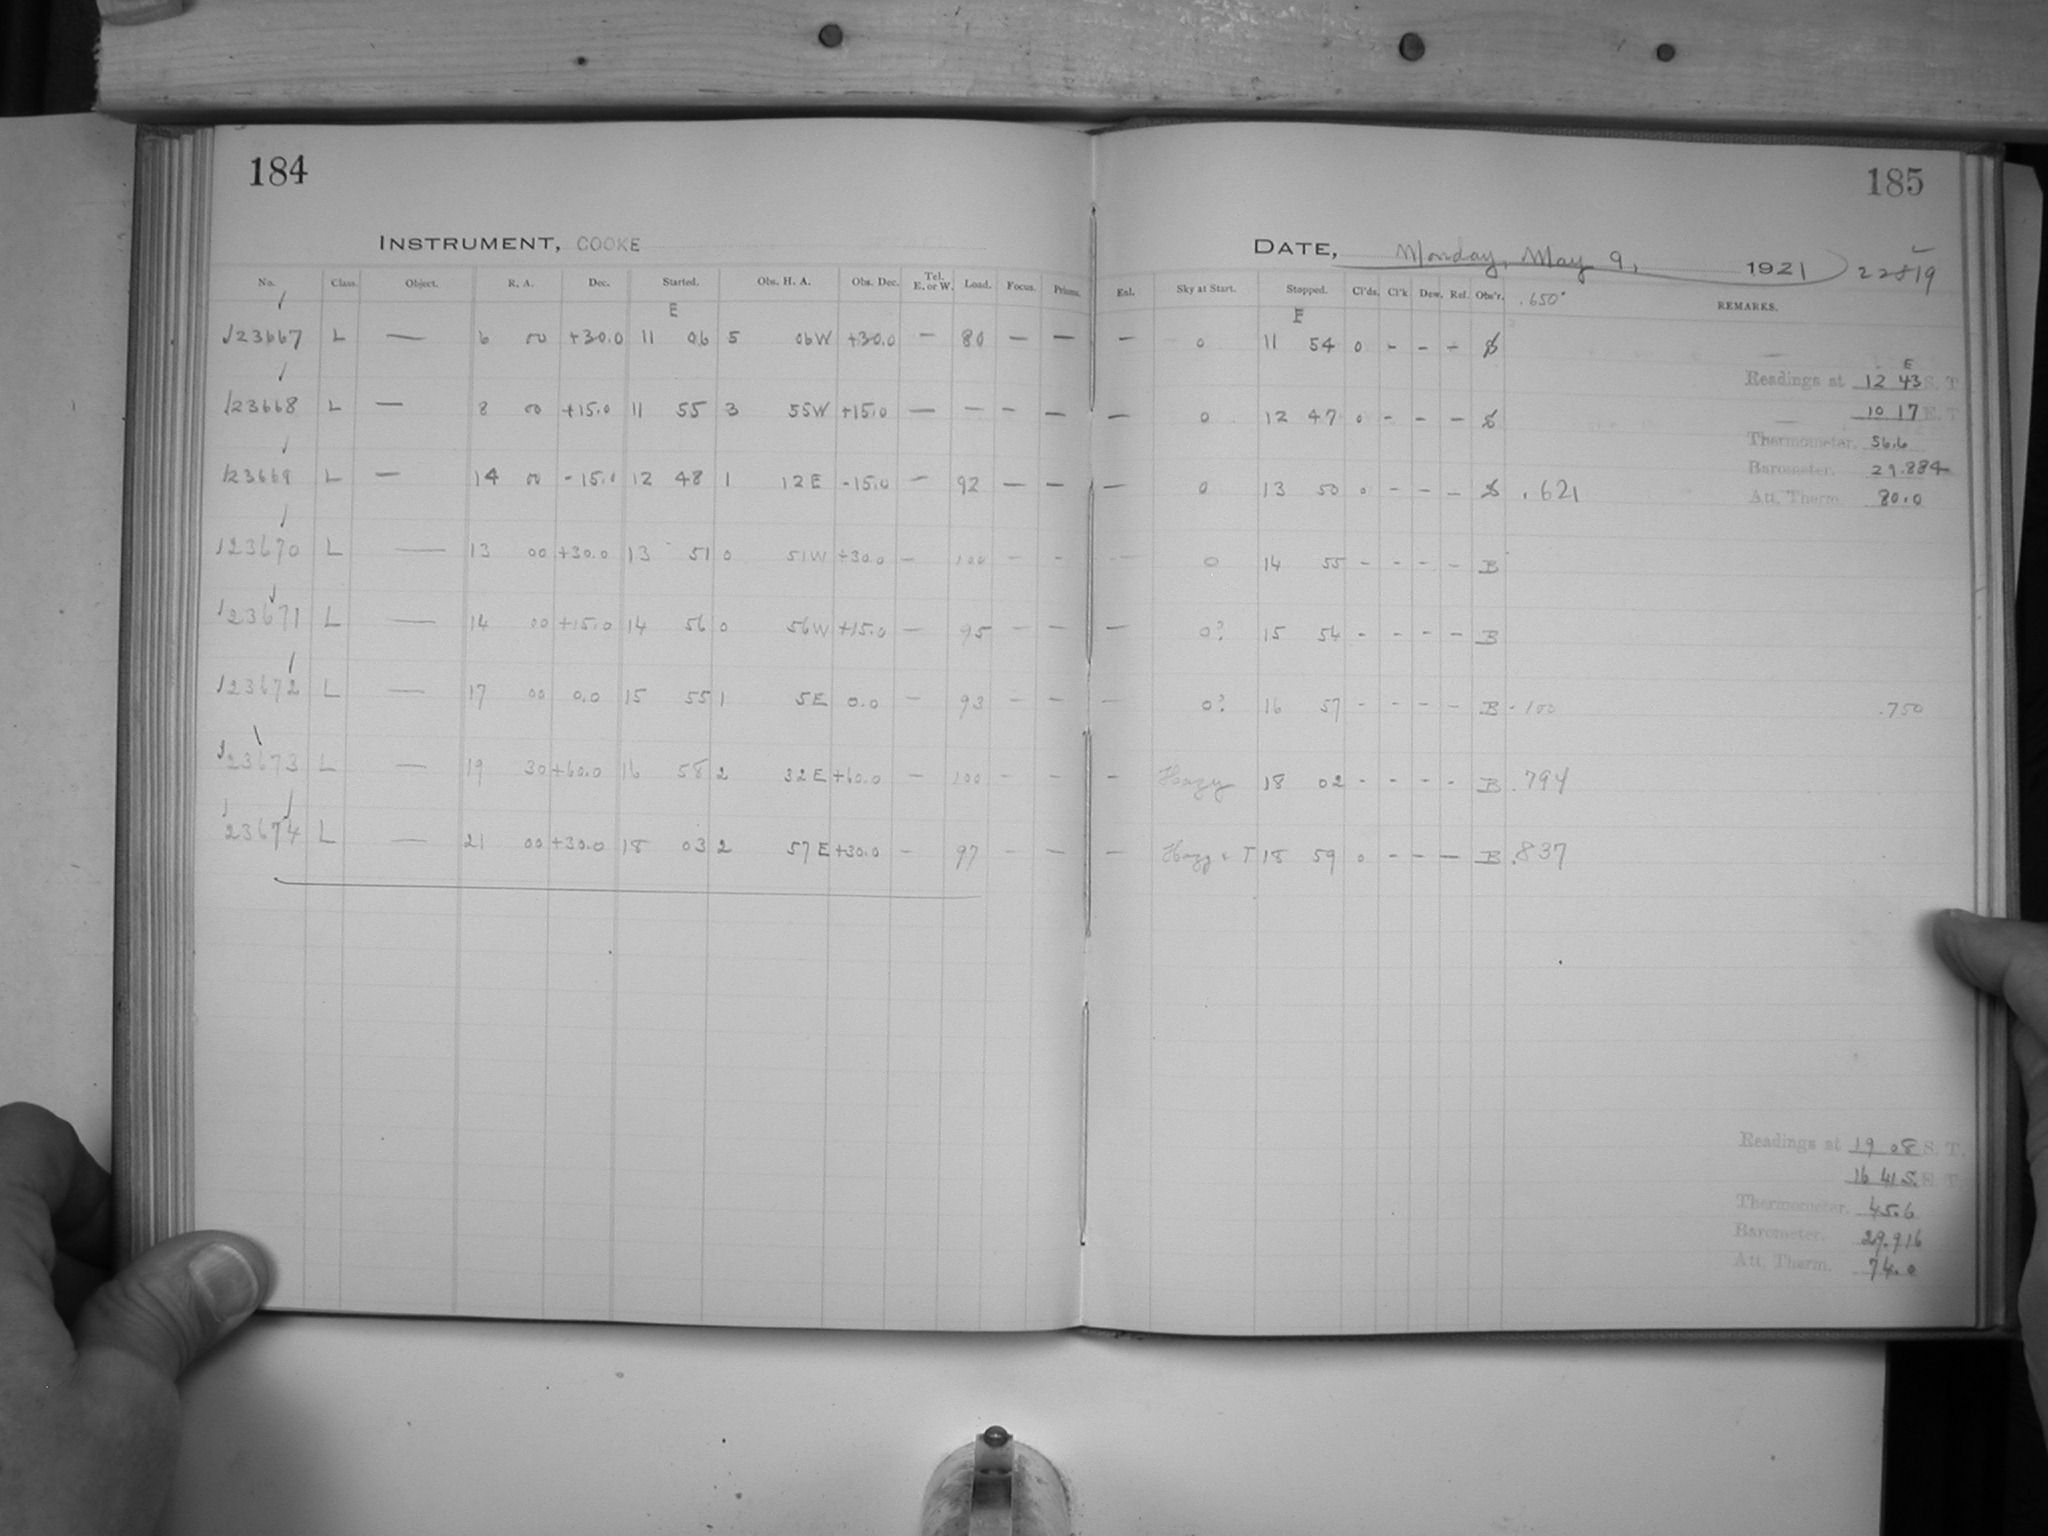 184
185
INSTRUMENT, COOKE
DATE, Monday, May 9, 1921 22819
No. Class. Object. R. A. Dec. Started. Obs. H. A. Obs. Dec. Tel. E. or W. Load. Focus. Prisms. Enl. Sky at Start. Stopped. Cl'ds. Cl'k Dew. Ref. Obs'r. .650 REMARKS.
E E
23667 L — 6 00 +30.0 11 06 5 06W +30.0 — 80 — — — 0 11 54 0 - - -
Readings at 12 43 S. T.
E
23668 L — 8 00 +15.0 11 55 3 55W +15.0 — — - — — 0 12 47 0 - - -
10 17 E. T.
Thermometer. 56.6
23669 L — 14 00 -15.0 12 48 1 12E -15.0 — 92 — — — 0 13 50 0 - - - .621
Barometer. 29.884
Att. Therm. 80.0
23670 L — 13 00 +30.0 13 51 0 51W +30.0 — 100 - - - 0 14 55 - - - - B
23671 L — 14 00 +15.0 14 56 0 56W +15.0 — 95 - - — 0? 15 54 - - - - B
23672 L — 17 00 0.0 15 55 1 5E 0.0 - 93 - - — 0? 16 57 - - - - B .100 .750
23673 L — 19 30 +60.0 16 58 2 32E +60.0 - 100 - - - Hazy 18 02 - - - - B .794
23674 L — 21 00 +30.0 18 03 2 57E +30.0 - 97 - — — Hazy + T 18 59 0 - - — B .837
Readings at 19 08 S. T.
16 41 S.
Thermometer. 45.6
Barometer. 29.916
Att. Therm. 74.0